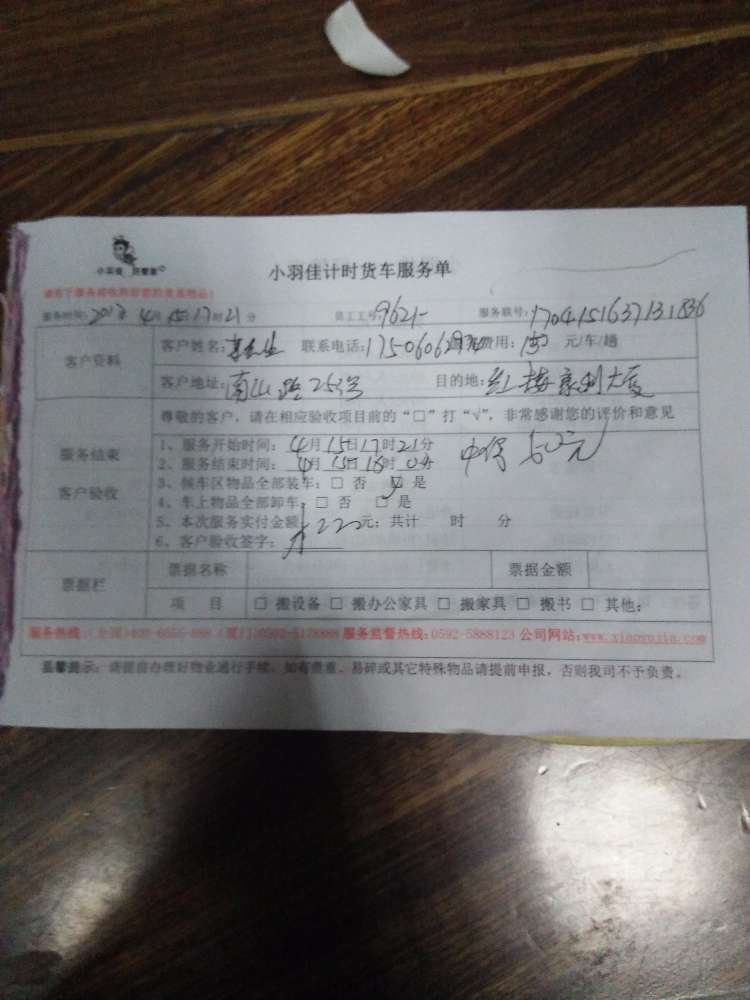 小羽佳 好管家
小羽佳计时货车服务单
服务时间:2017年4月15日17时21分 员工工号:9621 服务联号:1704151637131836
客户资料
客户姓名: 联系电话: 费用:150 元/车/趟
客户地址:南山路253号 目的地:红楼 大厦
尊敬的客户,请在相应验收项目前的“□”打“√”,非常感谢您的评价和意见
服务结束
客户验收
1、服务开始时间:4月15日17时21分
2、服务结束时间:4月15日 时 分
50元
3、候车区物品全部装车:□ 否 □ 是
4、车上物品全部卸车:□ 否 □ 是
5、本次服务实付金额:220元;共计 时 分
6、客户验收签字:
票据栏
票据名称 票据金额
项 目 □ 搬设备 □ 搬办公家具 □ 搬家具 □ 搬书 □ 其他:
服务热线: 服务监督热线:0592-5888123 公司网站:www.xiaoyujia.com
温馨提示:请提前办理好物业通行手续。如有贵重、易碎或其它特殊物品请提前申报,否则我司不予负责。